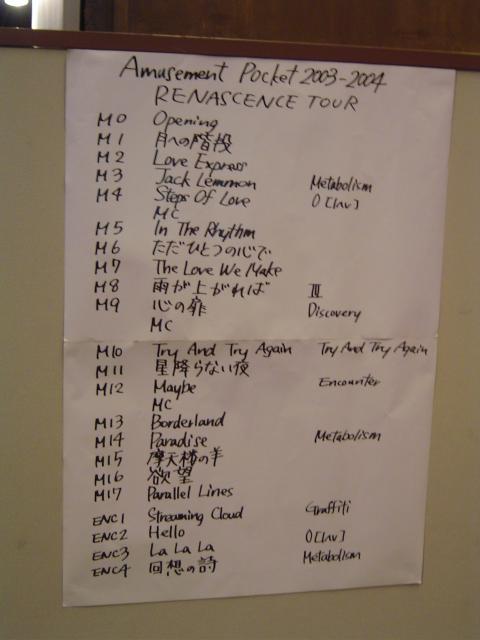 Amusement Pocket 2003-2004
RENASCENCE TOUR
M0 Opening
M1 月への階段
M2 Love Express
M3 Jack Lemmon Metabolism
M4 Steps Of Love O[lʌv]
MC
M5 In The Rhythm
M6 ただひとつの心で
M7 The Love We Make
M8 雨が上がれば III
M9 心の扉 Discovery
MC
M10 Try And Try Again Try And Try Again
M11 星降らない夜
M12 Maybe Encounter
MC
M13 Borderland
M14 Paradise Metabolism
M15 摩天楼の羊
M16 欲望
M17 Parallel Lines
ENC1 Streaming Cloud Graffiti
ENC2 Hello O[lʌv]
ENC3 La La La Metabolism
ENC4 回想の詩